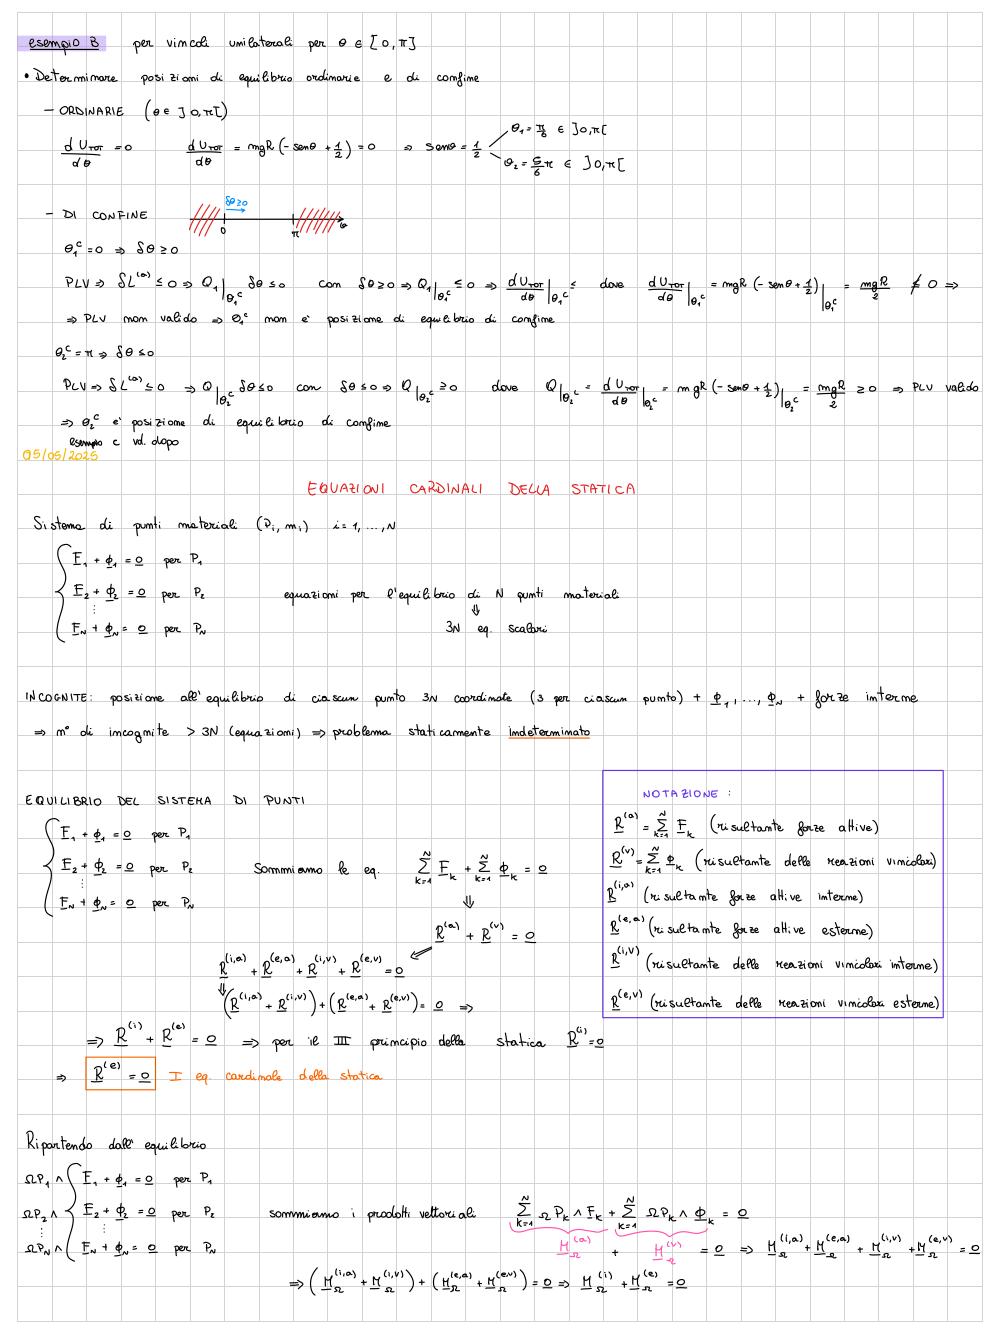 esempio B per vincoli unilaterali per θ ∈ [0, π]
• Determinare posizioni di equilibrio ordinarie e di confine
– ORDINARIE (θ ∈ ]0, π[)
dU_TOT/dθ = 0 dU_TOT/dθ = mgR (-senθ + 1/2) = 0 ⇒ senθ = 1/2 θ₁ = π/6 ∈ ]0, π[
θ₂ = 5/6 π ∈ ]0, π[
– DI CONFINE δθ≥0 0 π θ
θ₁ᶜ = 0 ⇒ δθ ≥ 0
PLV ⇒ δL⁽ᵃ⁾ ≤ 0 ⇒ Q₁|θ₁ᶜ δθ ≤ 0 con δθ ≥ 0 ⇒ Q₁|θ₁ᶜ ≤ 0 ⇒ dU_TOT/dθ|θ₁ᶜ ≤ dove dU_TOT/dθ|θ₁ᶜ = mgR (-senθ + 1/2)|θ₁ᶜ = mgR/2 ≰ 0 ⇒
⇒ PLV non valido ⇒ θ₁ᶜ non e' posizione di equilibrio di confine
θ₂ᶜ = π ⇒ δθ ≤ 0
PLV ⇒ δL⁽ᵃ⁾ ≤ 0 ⇒ Q|θ₂ᶜ δθ ≤ 0 con δθ ≤ 0 ⇒ Q|θ₂ᶜ ≥ 0 dove Q|θ₂ᶜ = dU_TOT/dθ|θ₂ᶜ = mgR (-senθ + 1/2)|θ₂ᶜ = mgR/2 ≥ 0 ⇒ PLV valido
⇒ θ₂ᶜ e' posizione di equilibrio di confine
esempio c vd. dopo
05/05/2025
EQUAZIONI CARDINALI DELLA STATICA
Sistema di punti materiali (Pᵢ, mᵢ) i = 1, ..., N
F₁ + ϕ₁ = 0 per P₁
F₂ + ϕ₂ = 0 per P₂ equazioni per l'equilibrio di N punti materiali
⋮ ⇓
F_N + ϕ_N = 0 per P_N 3N eq. scalari
INCOGNITE: posizione all'equilibrio di ciascun punto 3N coordinate (3 per ciascun punto) + ϕ₁, ..., ϕ_N + forze interne
⇒ n° di incognite > 3N (equazioni) ⇒ problema staticamente indeterminato
EQUILIBRIO DEL SISTEMA DI PUNTI
F₁ + ϕ₁ = 0 per P₁
F₂ + ϕ₂ = 0 per P₂ Sommiamo le eq. Σ_{k=1}^N F_k + Σ_{k=1}^N ϕ_k = 0
⋮ ⇓
F_N + ϕ_N = 0 per P_N
R⁽ᵃ⁾ + R⁽ᵛ⁾ = 0
R^(i,a) + R^(e,a) + R^(i,v) + R^(e,v) = 0
⇓ (R^(i,a) + R^(i,v)) + (R^(e,a) + R^(e,v)) = 0 ⇒
⇒ R^(i) + R^(e) = 0 ⇒ per il III principio della statica R^(i) = 0
⇒ R^(e) = 0 I eq. cardinale della statica
NOTAZIONE :
R^(a) = Σ_{k=1}^N F_k (risultante forze attive)
R^(v) = Σ_{k=1}^N ϕ_k (risultante delle reazioni vincolari)
R^(i,a) (risultante forze attive interne)
R^(e,a) (risultante forze attive esterne)
R^(i,v) (risultante delle reazioni vincolari interne)
R^(e,v) (risultante delle reazioni vincolari esterne)
Ripartendo dall'equilibrio
ΩP₁ ∧ F₁ + ϕ₁ = 0 per P₁
ΩP₂ ∧ F₂ + ϕ₂ = 0 per P₂ sommiamo i prodotti vettoriali Σ_{k=1}^N ΩP_k ∧ F_k + Σ_{k=1}^N ΩP_k ∧ ϕ_k = 0
⋮ ⋮
ΩP_N ∧ F_N + ϕ_N = 0 per P_N M_Ω^(a) + M_Ω^(v) = 0 ⇒ M_Ω^(i,a) + M_Ω^(e,a) + M_Ω^(i,v) + M_Ω^(e,v) = 0
⇒ (M_Ω^(i,a) + M_Ω^(i,v)) + (M_Ω^(e,a) + M_Ω^(e,v)) = 0 ⇒ M_Ω^(i) + M_Ω^(e) = 0